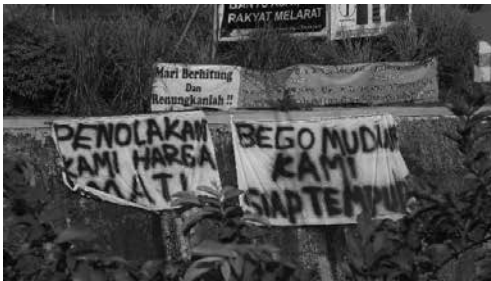 RAKYAT MELARAT
Mari Berhitung
Dan
Renungkanlah !!
PENOLAKAN
KAMI HARGA
MATI
BEGO MUDUN
KAMI
SIAP TEMPUR